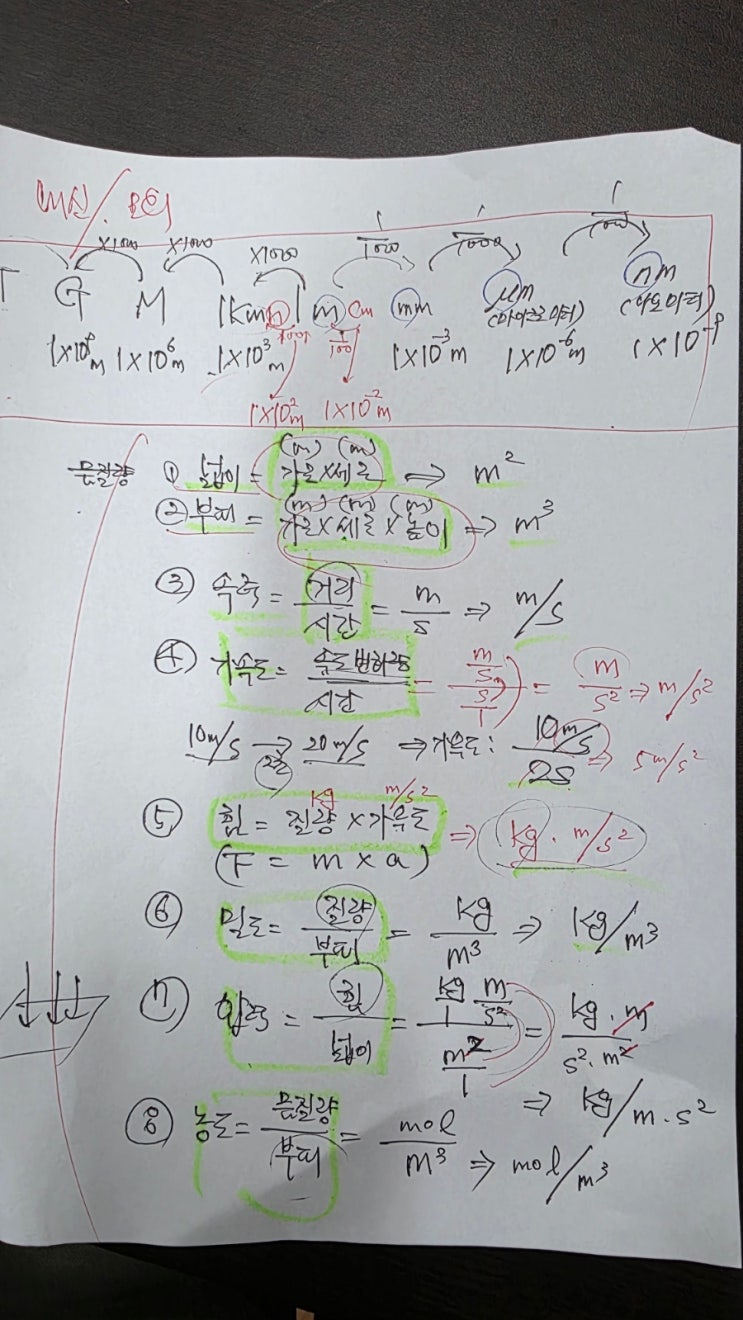 ×1000 ×1000 ×1000 1/1000 1/1000 1/1000
T G M 1km m cm mm μm nm
(마이크로미터) (나노미터)
1×10⁹m 1×10⁶m 1×10³m 1/100 1×10⁻³m 1×10⁻⁶m 1×10⁻⁹
1×10²m 1×10⁻²m
물질량 ① 넓이 = 가로(m)×세로(m) ⇒ m²
② 부피 = 가로(m)×세로(m)×높이(m) ⇒ m³
③ 속력 = 거리/시간 = m/s ⇒ m/s
④ 가속도 = 속도변화량/시간 = (m/s)/(s/1) = m/s² ⇒ m/s²
10m/s → 20m/s ⇒ 가속도: 10m/s/2s ⇒ 5m/s²
2초
⑤ 힘 = 질량 kg × 가속도 m/s² ⇒ kg·m/s²
(F = m × a)
⑥ 밀도 = 질량/부피 = kg/m³ ⇒ kg/m³
⑦ 압력 = 힘/넓이 = (kg/1 m/s²)/(m²/1) = kg·m/s²·m²
⇒ kg/m·s²
⑧ 농도 = 물질량/부피 = mol/m³ ⇒ mol/m³